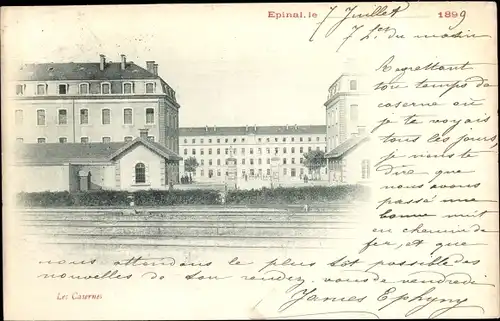 Epinal, le 7 Juillet 1899
7 h du matin
Regrettant
ton temps de
caserne ou
tous les jours,
je viens te
dire que
nous avons
passé une
bonne nuit
en chemin de
fer, et que
nous attendons le plus tôt possible des
nouvelles de ton rendez vous de vendredi
Les Casernes